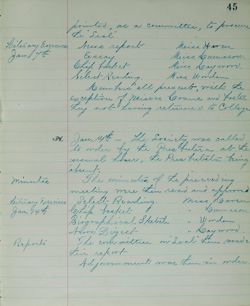 45
pointed, as a committee, to procure
the Seal.
Literary Exercises
Jan. 7th
News report Miss Haven
Essay Miss
Chip basket Miss Haywood
Select Reading Miss Worden
Members all present, with the
exception of Misses Crane and
they not having returned to College
Jan. 14th – The Society was called
to order by the President at the
usual hour, the President being
absent.
Minutes
The minutes of the preceding
meeting were then read and approved
Literary Exercises
Jan 14th
Select Reading Miss
Chip basket "
Biographical Sketch " Worden
News Digest " Haywood
Reports
The committee on Seal then made
their report.
Adjournment was then in order